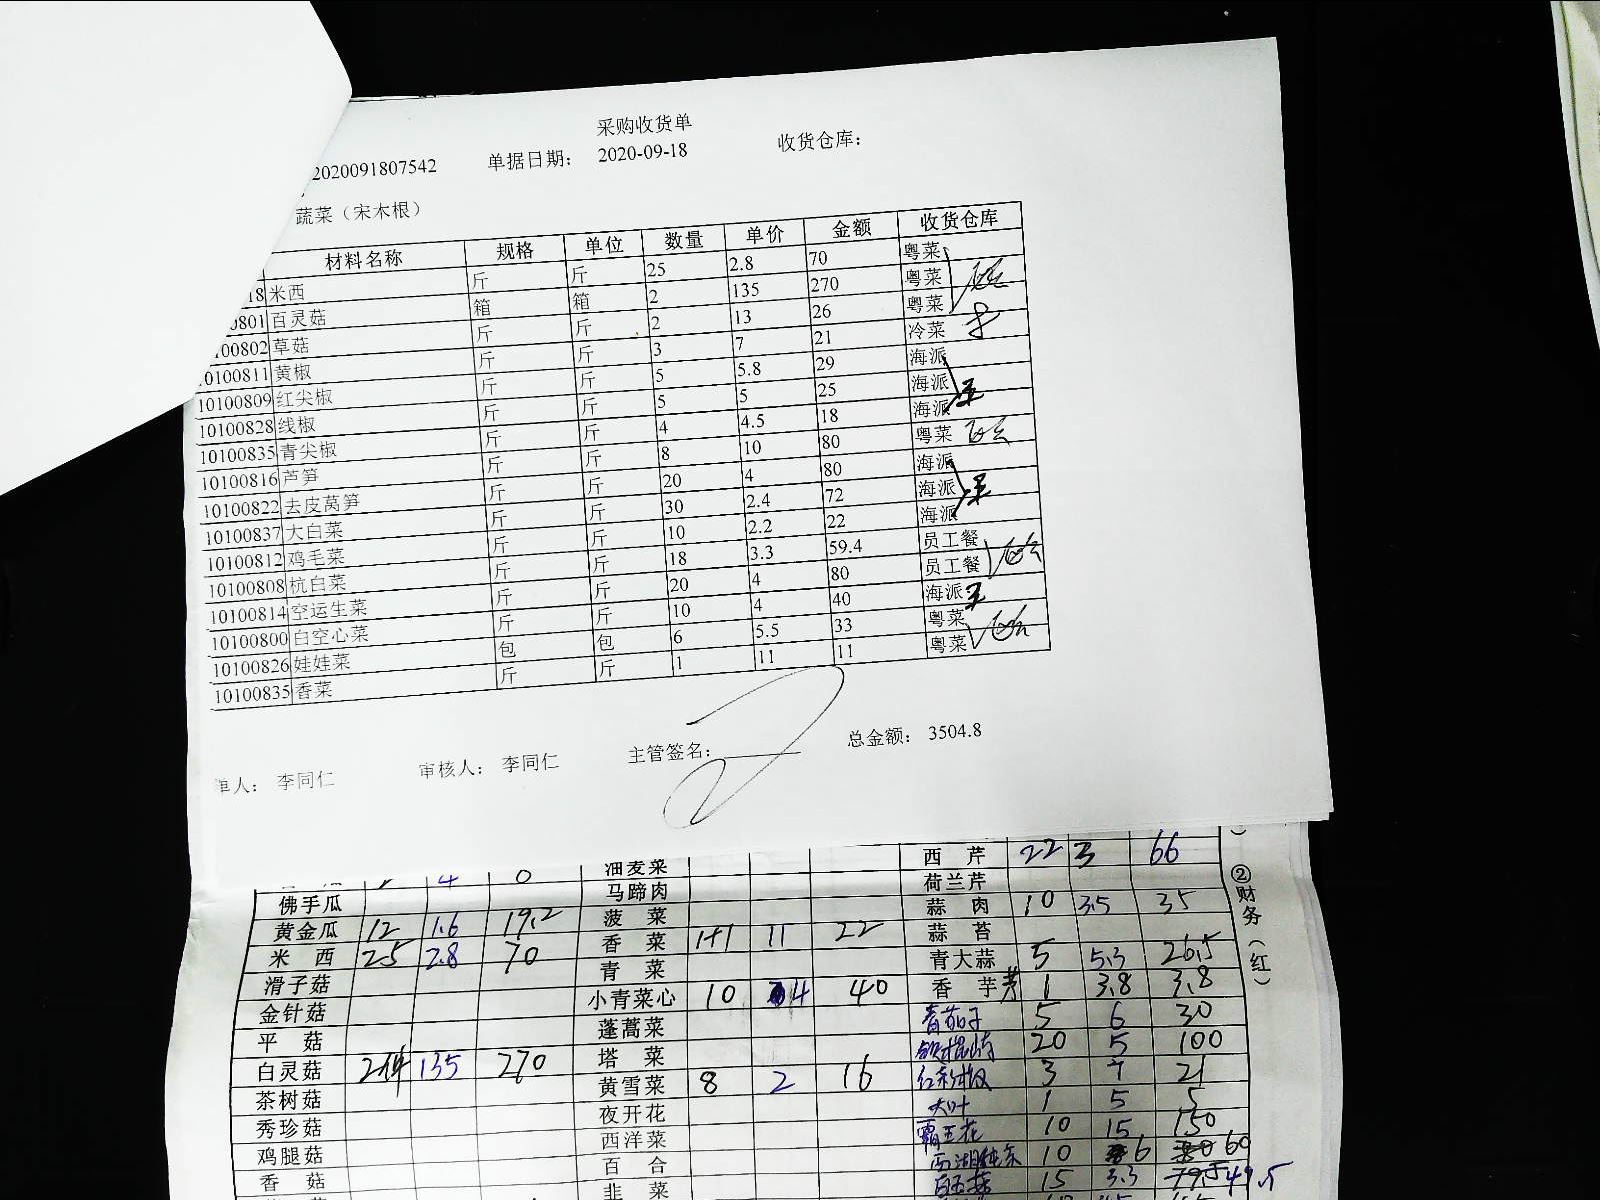 采购收货单
2020091807542 单据日期： 2020-09-18 收货仓库：
蔬菜（宋木根）
材料名称 规格 单位 数量 单价 金额 收货仓库
18 米西 斤 斤 25 2.8 70 粤菜
0801 百灵菇 箱 箱 2 135 270 粤菜
100802 草菇 斤 斤 2 13 26 粤菜
10100811 黄椒 斤 斤 3 7 21 冷菜
10100809 红尖椒 斤 斤 5 5.8 29 海派
10100828 线椒 斤 斤 5 5 25 海派
10100835 青尖椒 斤 斤 4 4.5 18 海派
10100816 芦笋 斤 斤 8 10 80 粤菜
10100822 去皮莴笋 斤 斤 20 4 80 海派
10100837 大白菜 斤 斤 30 2.4 72 海派
10100812 鸡毛菜 斤 斤 10 2.2 22 海派
10100808 杭白菜 斤 斤 18 3.3 59.4 员工餐
10100814 空运生菜 斤 斤 20 4 80 员工餐
10100800 白空心菜 斤 斤 10 4 40 海派
10100826 娃娃菜 包 包 6 5.5 33 粤菜
10100835 香菜 斤 斤 1 11 11 粤菜
单人： 李同仁 审核人： 李同仁 主管签名： 总金额： 3504.8
4 0 油麦菜 西芹 22 3 66
佛手瓜 马蹄肉 荷兰芹
黄金瓜 12 1.6 19.2 菠菜 蒜肉 10 3.5 35
米西 25 2.8 70 香菜 1+1 11 22 蒜苔
滑子菇 青菜 青大蒜 5 5.3 26.5
金针菇 小青菜心 10 4 40 香芋 1 3.8 3.8
平菇 蓬蒿菜 5 6 30
白灵菇 2件 135 270 塔菜 20 5 100
茶树菇 黄雪菜 8 2 16 3 7 21
秀珍菇 夜开花 大叶 1 5 5
鸡腿菇 西洋菜 霸王花 10 15 150
香菇 百合 西湖莼菜 10 6 60
韭菜 白玉菇 15 3.3 49.5
②财务（红）